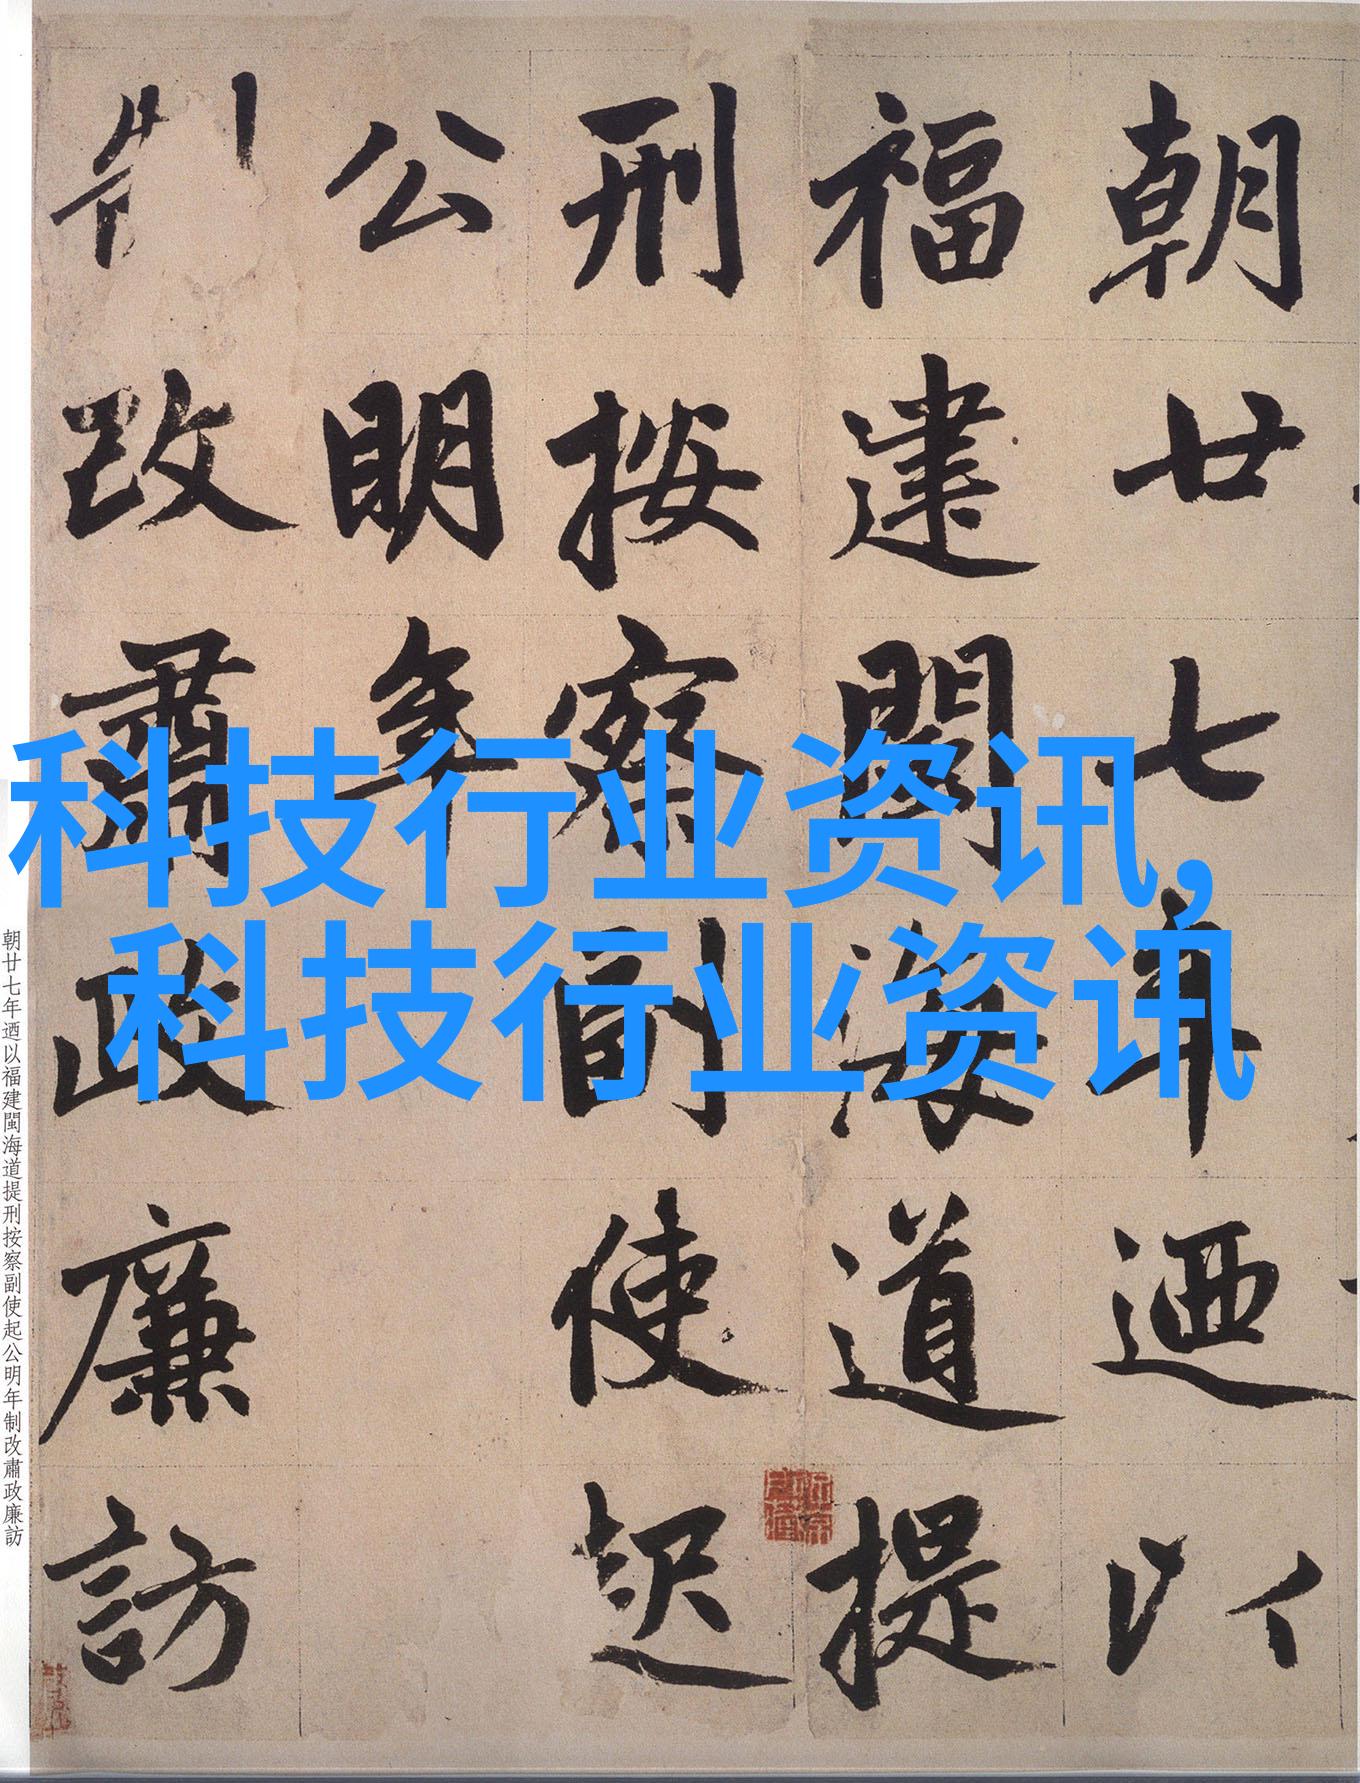 朝廿七年迺以
福建閩海道提
刑按察副使起
公明年
制改肅政廉訪
科技行业资讯,
科技行业资讯
朝廿七年迺以福建閩海道提刑按察副使起公明年制改肅政廉訪